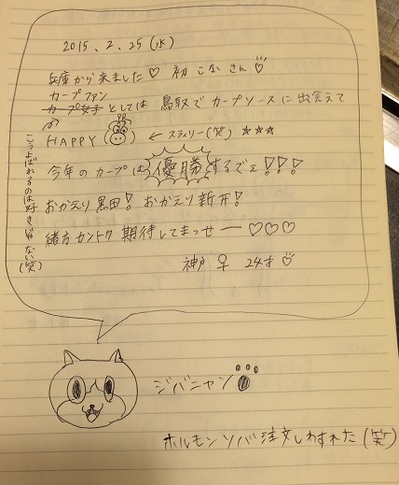 2015.2.25(水)
兵庫から来ました♡ 初 こな さん
カープファン
カープ女子としては 鳥取で カープソースに出会えて
HAPPY ← スラィリー(笑) ☆☆☆
今年のカープは優勝するでェ!!!
おかえり黒田! おかえり新井!
緒方カントク 期待してまっせー ♡♡♡
神戸 ♀ 24才
こうよばれるのは好きじゃない(笑)
ジバニャン
ホルモンソバ注文しわすれた(笑)